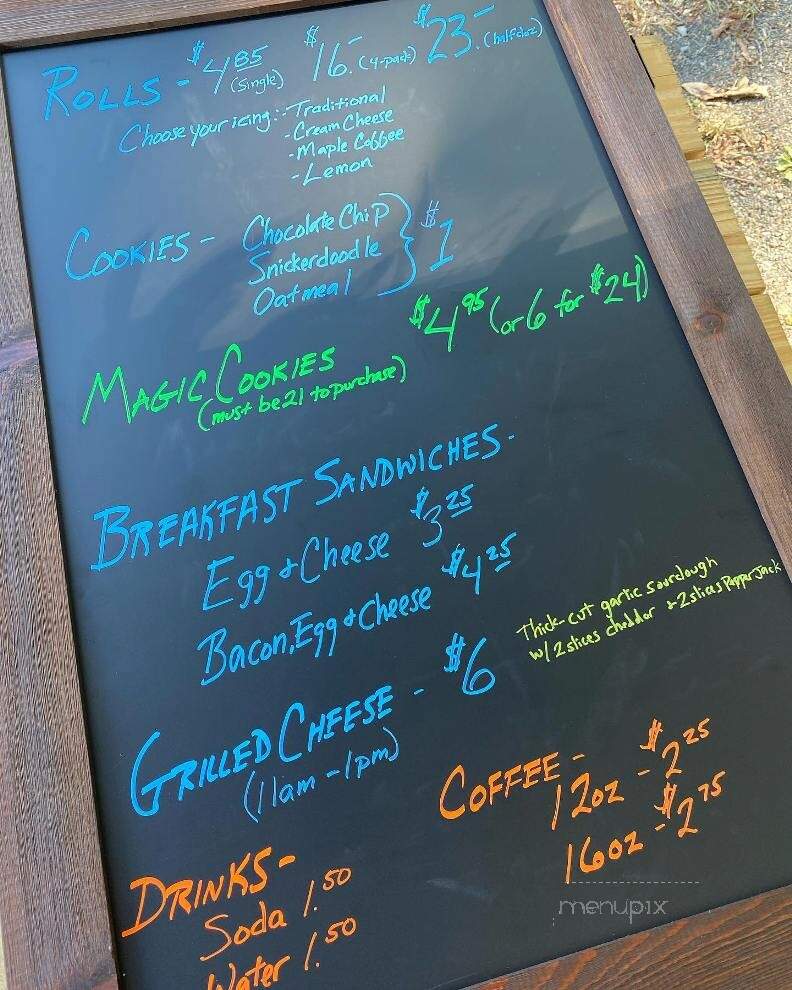 ROLLS - $4.85 (single) $16.- (4-pack) $23.- (half doz)
Choose your icing: - Traditional
- Cream Cheese
- Maple Coffee
- Lemon
COOKIES - Chocolate Chip } $1
Snickerdoodle
Oatmeal
MAGIC COOKIES $4.95 (or 6 for $24)
(must be 21 to purchase)
BREAKFAST SANDWICHES -
Egg & Cheese $3.25
Bacon, Egg & Cheese $4.25
Thick-cut garlic sourdough
w/ 2 slices cheddar + 2 slices Pepper Jack
GRILLED CHEESE - $6
(11am - 1pm)
COFFEE -
12oz - $2.25
16oz - $2.75
DRINKS -
Soda 1.50
Water 1.50
menupix